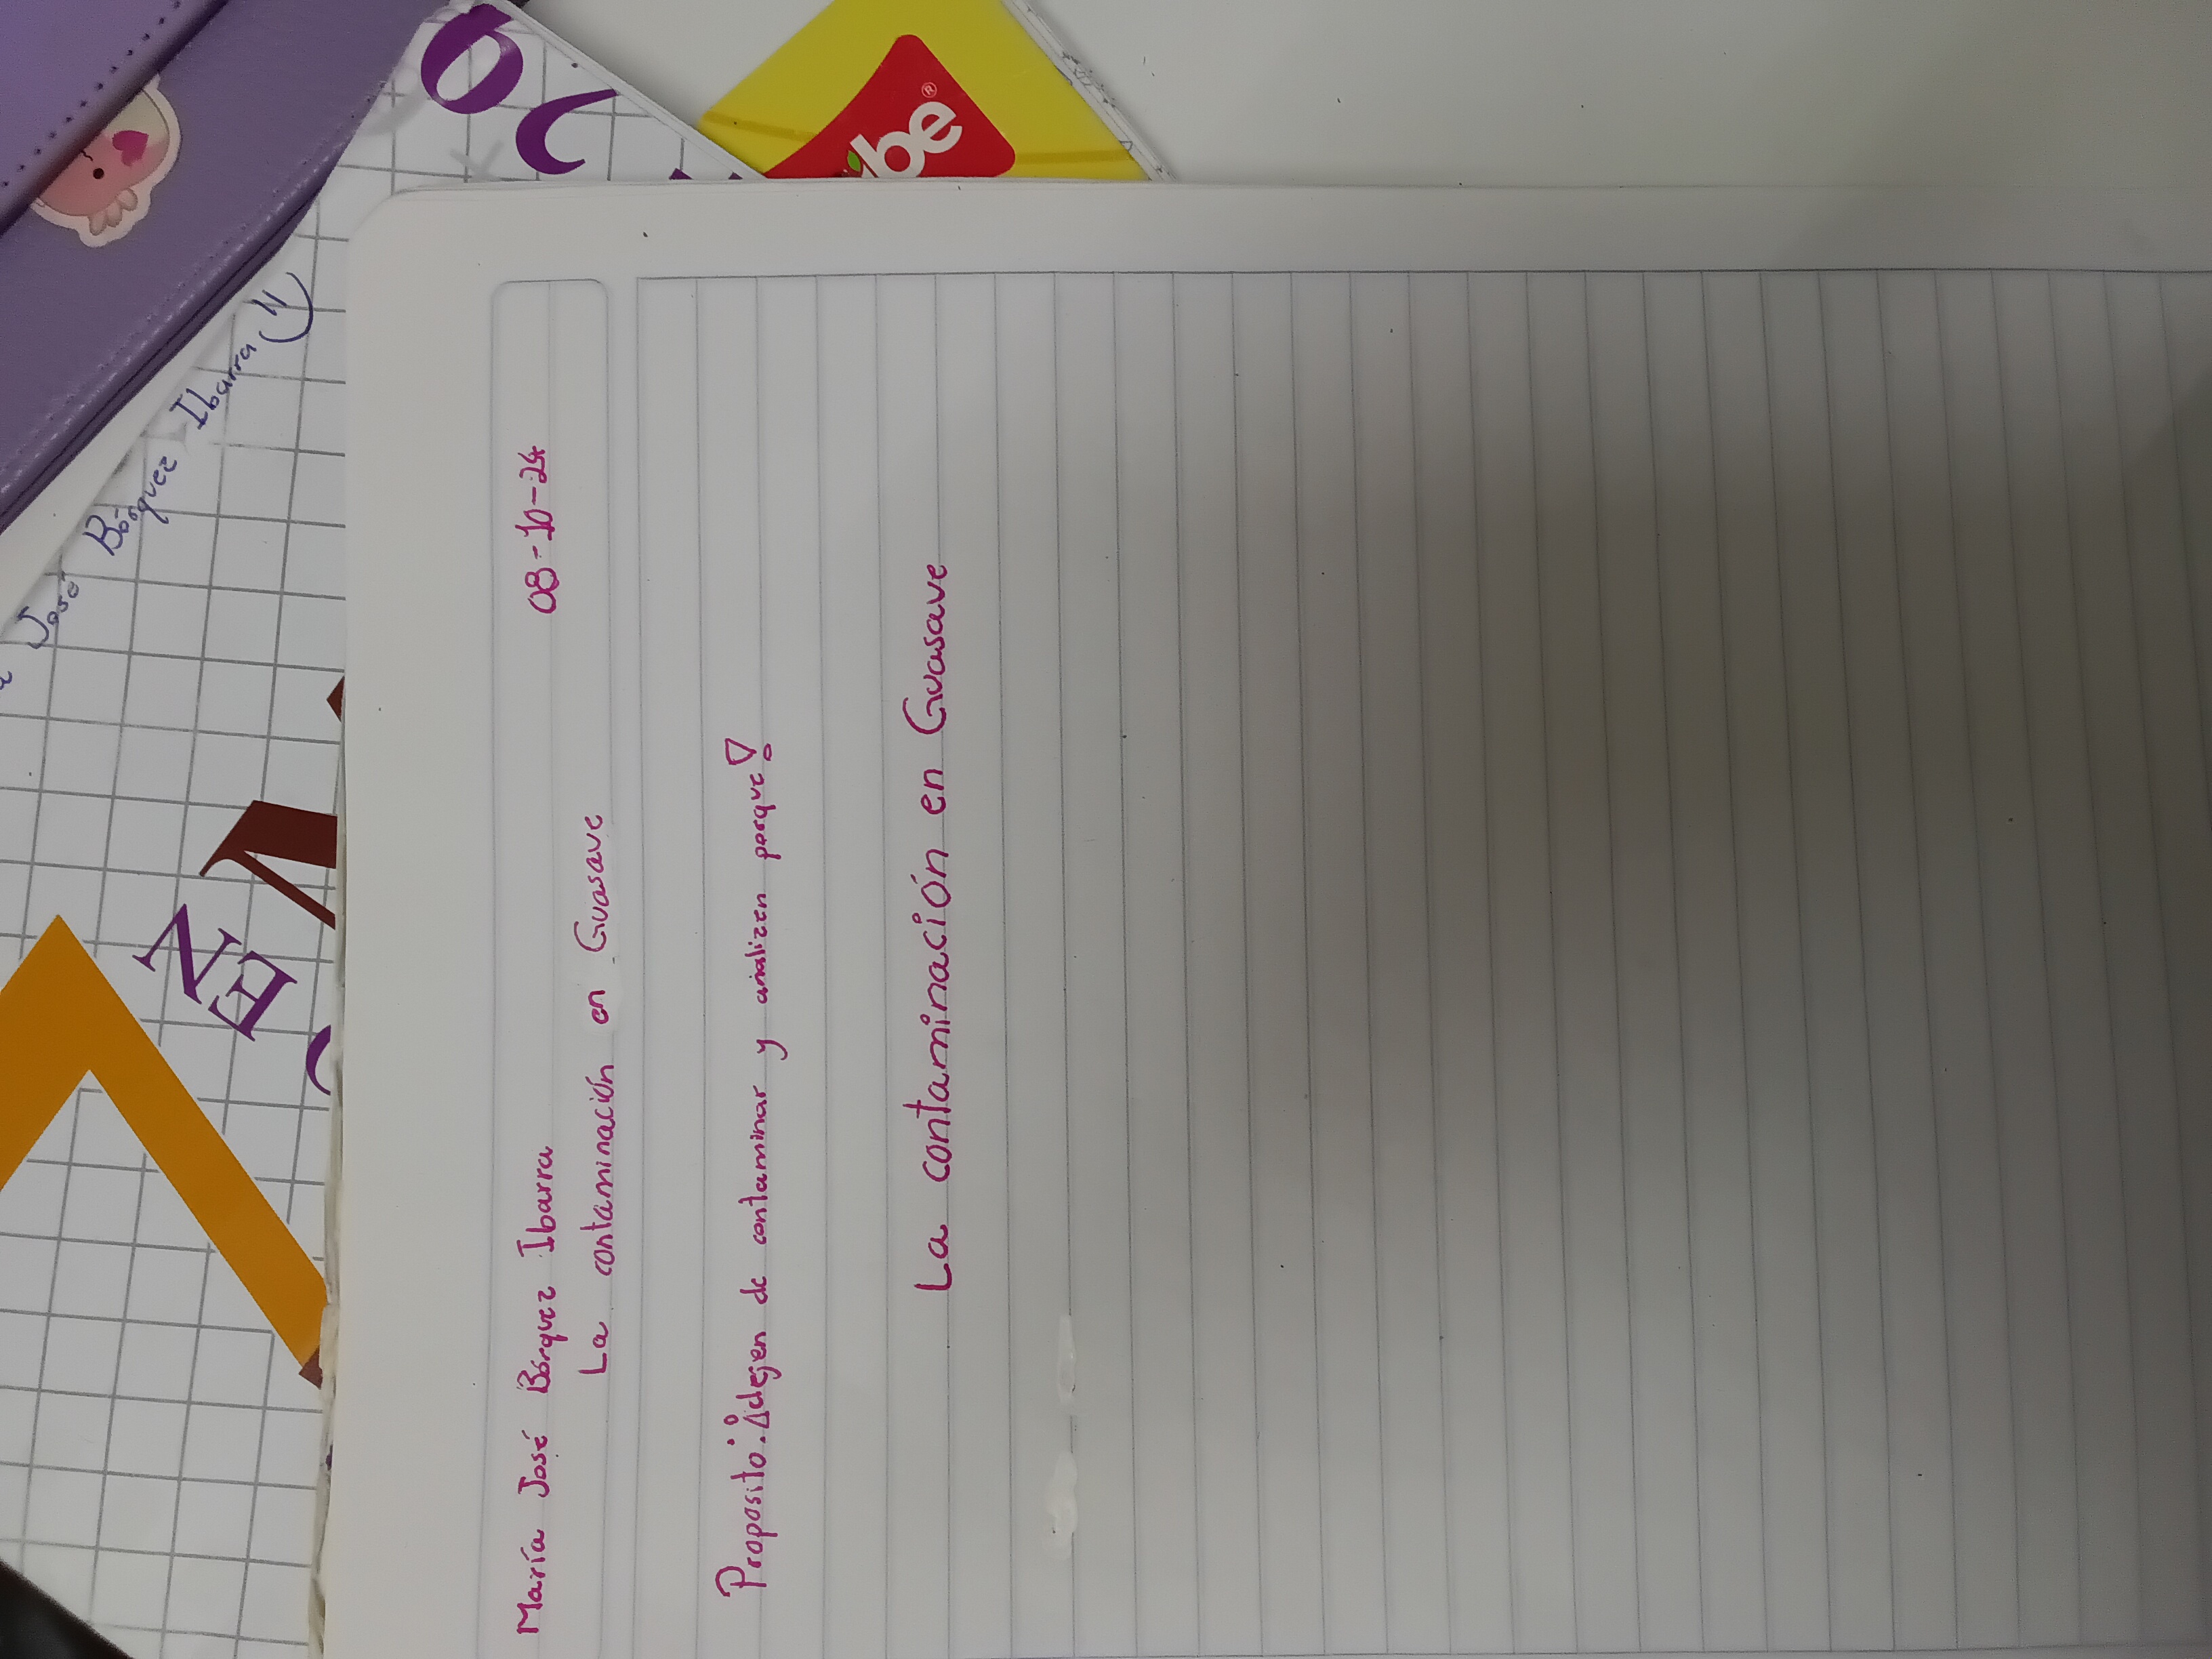 María José Bórquez Ibarra 08-10-24
La contaminación en Guasave
Proposito: ¡dejen de contaminar y analizen porque!
La contaminación en Guasave
José Bórquez Ibarra
be®
EN